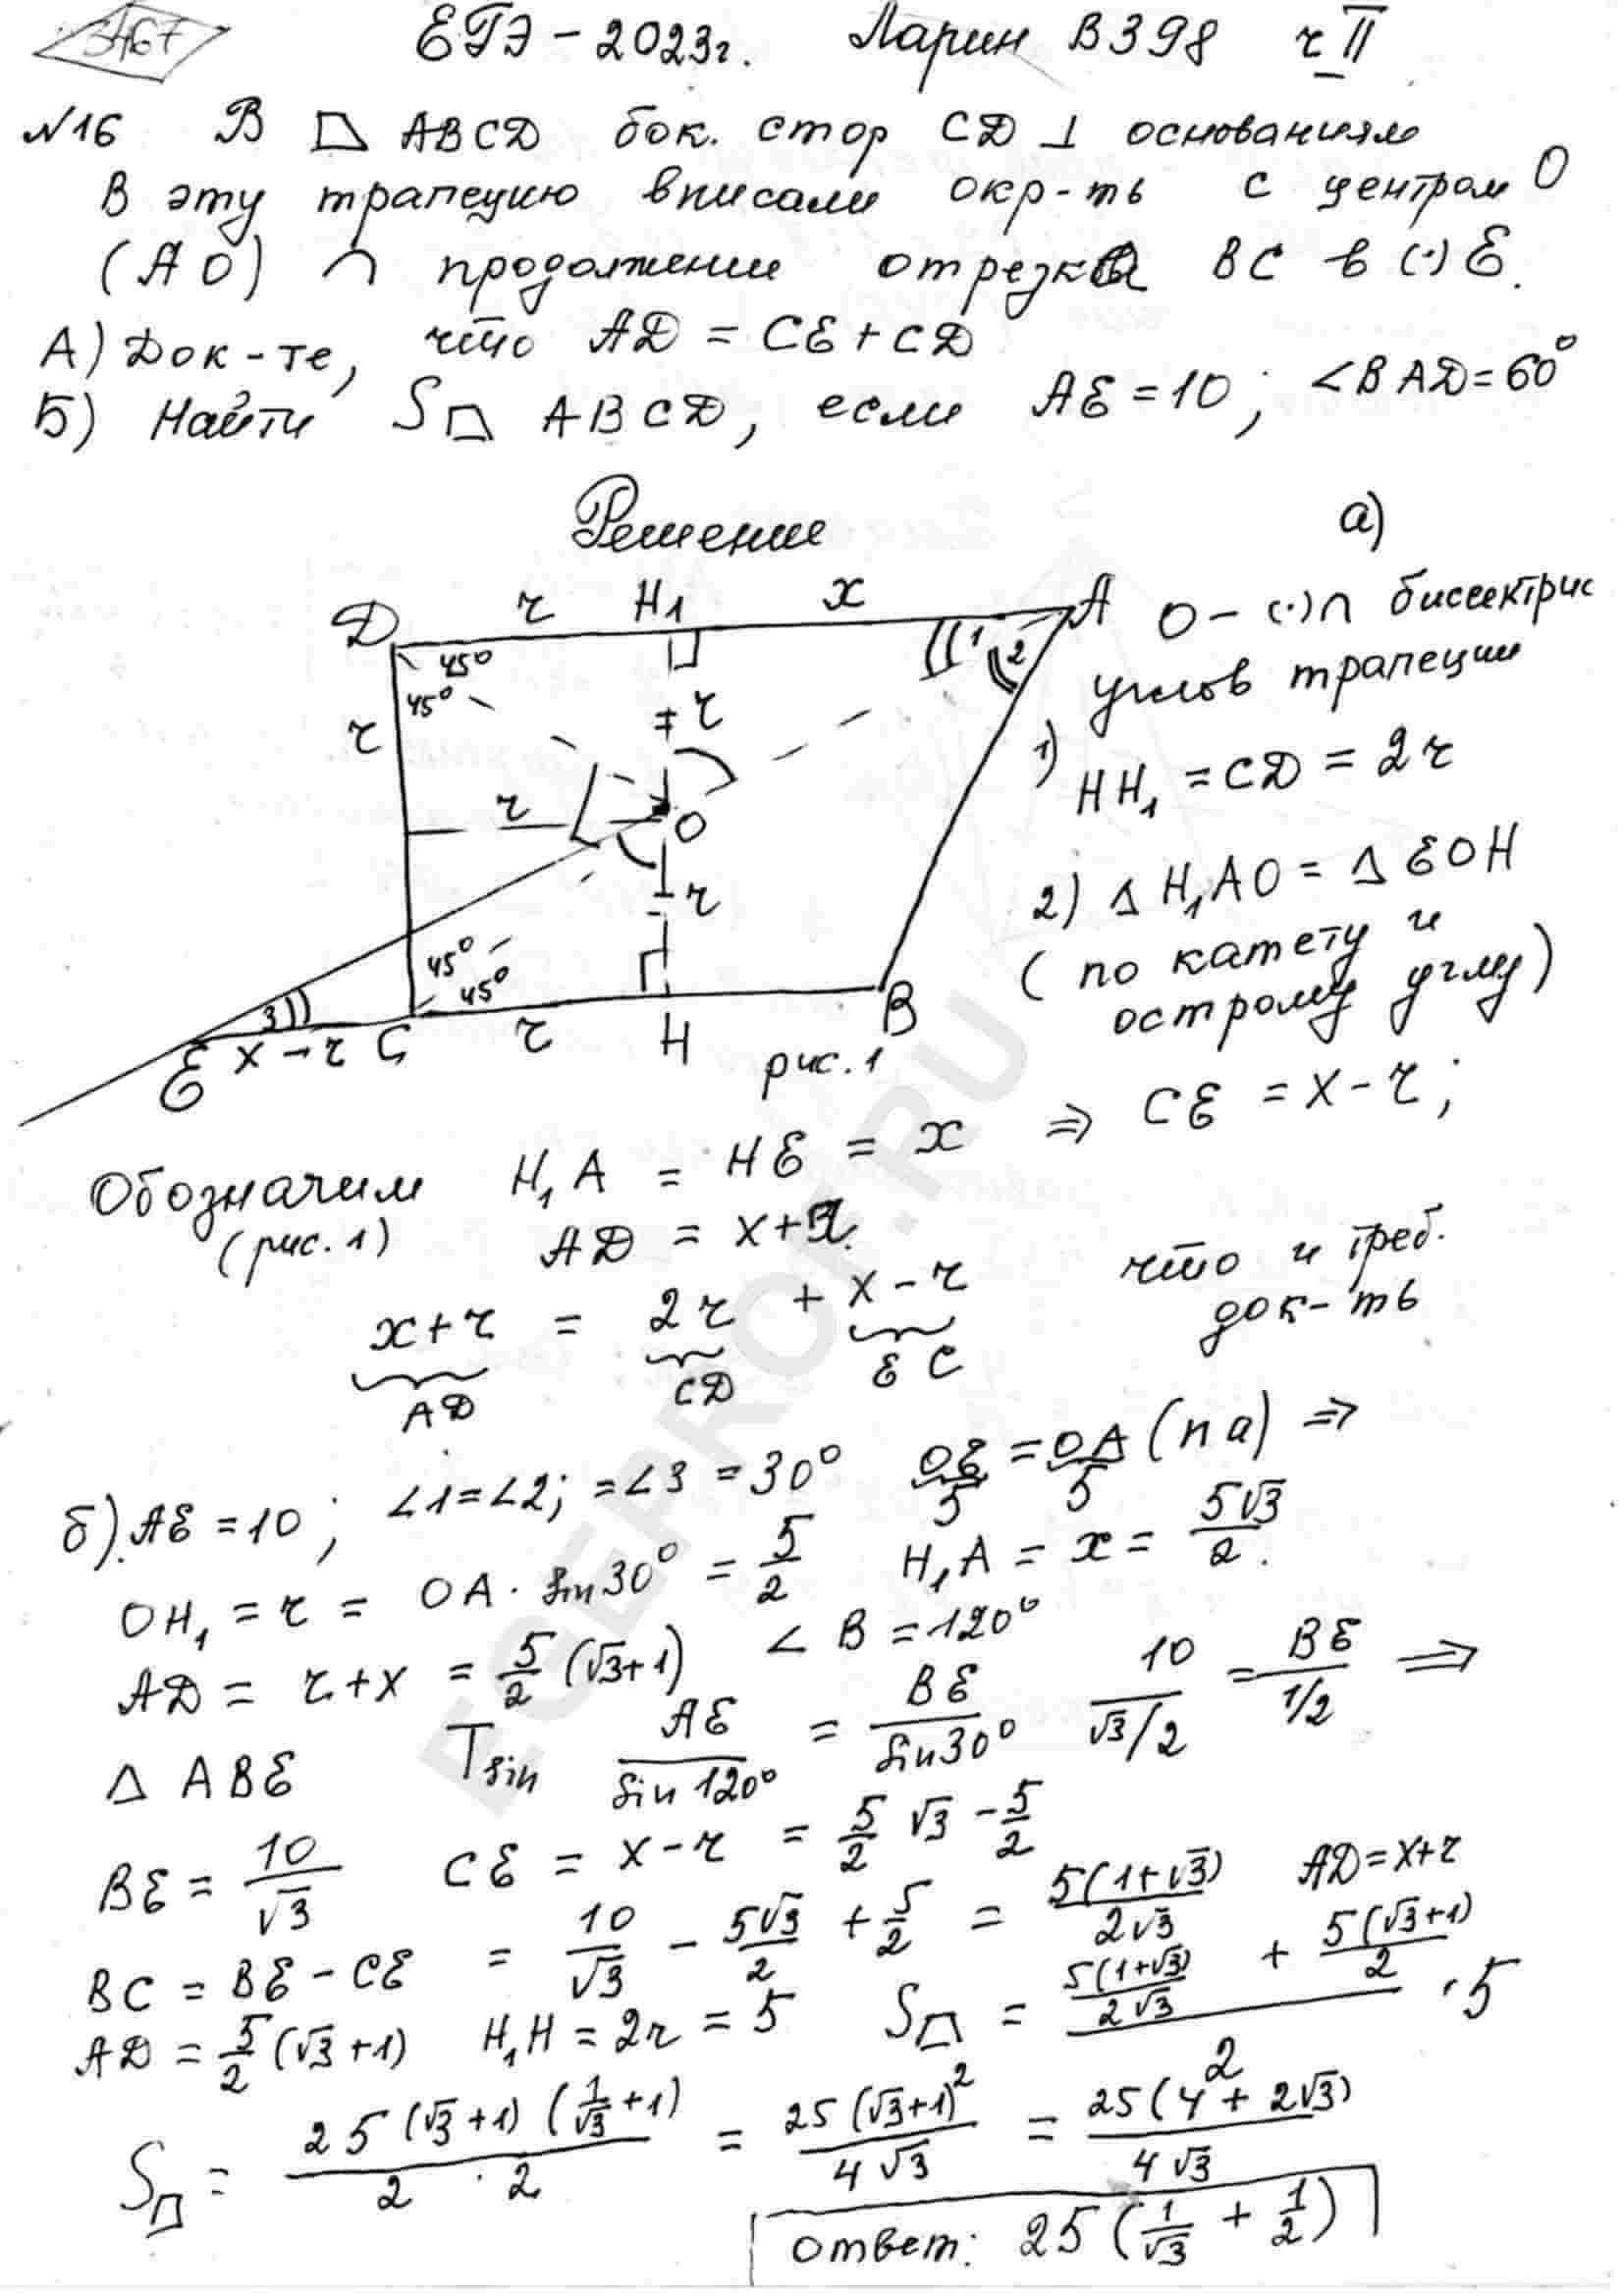 3467 ЕГЭ-2023г. Ларин В398 ч II
№16 В ABCD бок. стор CD ⊥ основаниям
В эту трапецию вписали окр-ть с центром О
(АО) ∩ продолжение отрезка ВС в (·) Е.
А) Док-те, что AD = CE + CD
Б) Найти S ABCD, если AE = 10; ∠BAD = 60°
Решение
а)
D r H₁ x A
45° 45° 1 2
r r r O r
45° 45° 3
E x-r C r H B
рис. 1
О - (·)∩ биссектрис
углов трапеции
1) HH₁ = CD = 2r
2) Δ H₁AO = Δ EOH
(по катету и
острому углу)
Обозначим H₁A = HE = x ⇒ CE = x - r;
(рис. 1) AD = x + r.
x + r = 2r + x - r что и треб.
AD CD EC док-ть
б). AE = 10; ∠1 = ∠2; = ∠3 = 30° OE = OA (п а) ⇒
5 5
OH₁ = r = OA · sin 30° = 5/2 H₁A = x = 5√3/2.
AD = r + x = 5/2 (√3+1) ∠B = 120°
Δ ABE Tsin AE/sin 120° = BE/sin 30° 10/(√3/2) = BE/(1/2) ⇒
BE = 10/√3 CE = x - r = 5/2 √3 - 5/2
BC = BE - CE = 10/√3 - 5√3/2 + 5/2 = 5(1+√3)/2√3 AD = x + r
AD = 5/2 (√3+1) H₁H = 2r = 5 S = (5(1+√3)/2√3 + 5(√3+1)/2)/2 · 5
S = 25(√3+1)(1/√3+1)/2·2 = 25(√3+1)²/4√3 = 25(4+2√3)/4√3
ответ: 25(1/√3 + 1/2)
EGEPROF.RU